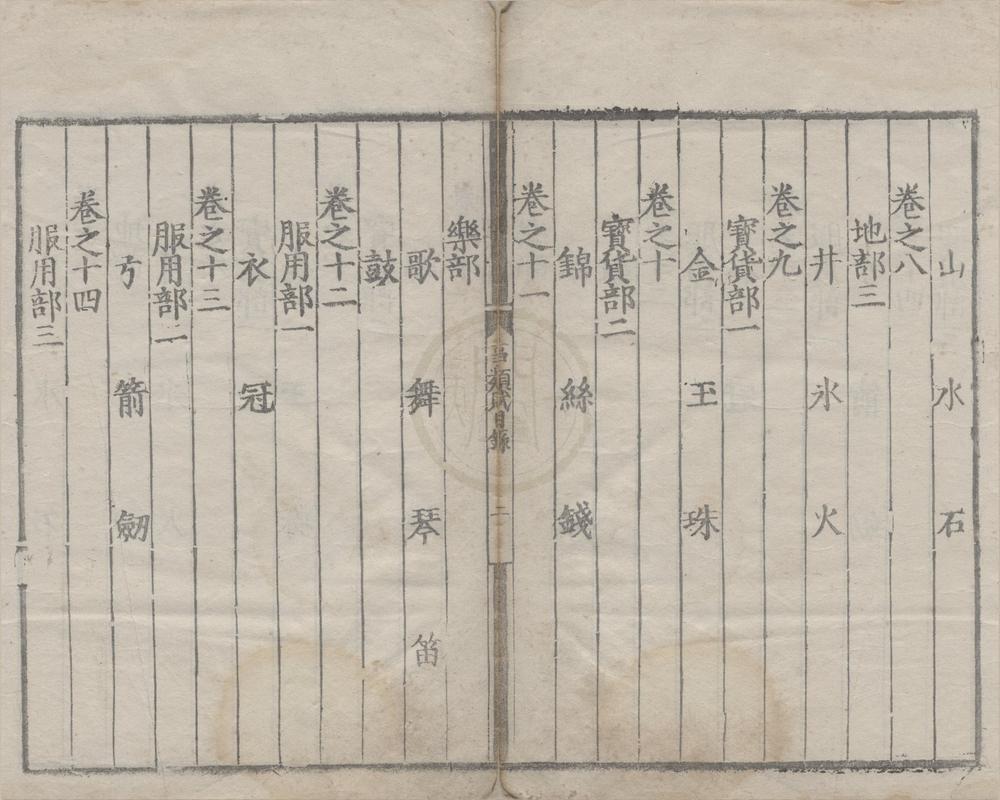 山 水 石
卷之八
地部三
井 氷 火
卷之九
寳貨部一
金 玉 珠
卷之十
寳貨部二
錦 絲 錢
卷之十一
類 目錄 二
樂部
歌 舞 琴 笛
鼓
卷之十二
服用部一
衣 冠
卷之十三
服用部二
弓 箭 劒
卷之十四
服用部三